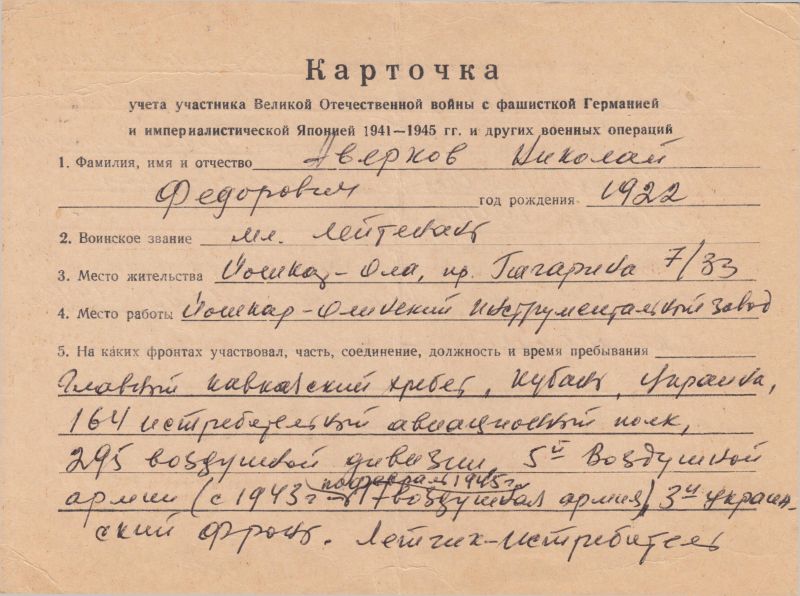 Карточка
учета участника Великой Отечественной войны с фашисткой Германией
и империалистической Японией 1941—1945 гг. и других военных операций
1. Фамилия, имя и отчество Аверков Николай
Федорович год рождения 1922
2. Воинское звание мл. лейтенант
3. Место жительства Йошкар-Ола, пр. Гагарина 7/33
4. Место работы Йошкар-Олинский инструментальный завод
5. На каких фронтах участвовал, часть, соединение, должность и время пребывания
Главный кавказский хребет, Кубань, Украина,
164 истребительный авиационный полк,
295 воздушной дивизии 5й Воздушной
по февраль 1945г
армии (с 1943г 17 воздушная армия), 3й украин-
ский фронт. Летчик-истребитель